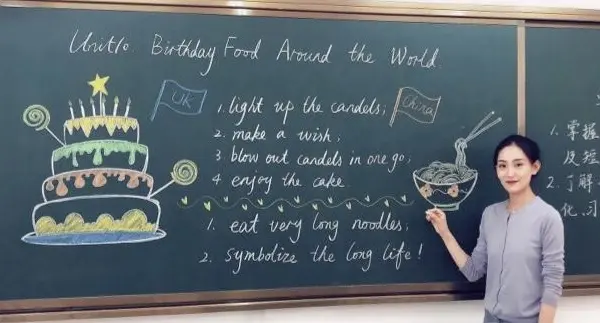 Unit10 Birthday Food Around the World
UK
China
1. light up the candels;
2. make a wish;
3 blow out candels in one go;
4 enjoy the cake
1. eat very long noodles;
2. symbolize the long life!
1. 掌握
及短
2. 了解
化、习